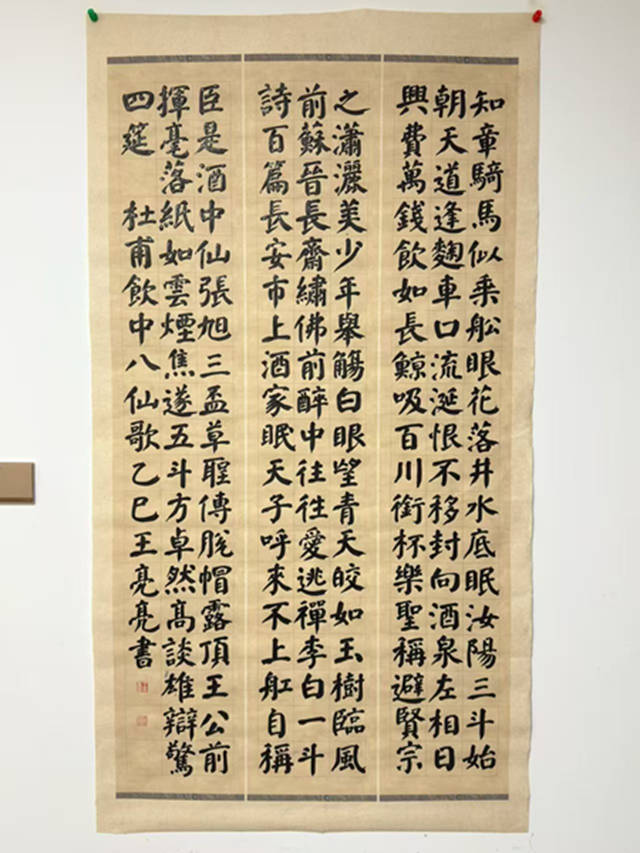 知章騎馬似乘舩眼花落井水底眠汝陽三斗始
朝天道逢麴車口流涎恨不移封向酒泉左相日
興費萬錢飲如長鯨吸百川銜杯樂聖稱避賢宗
之瀟灑美少年舉觴白眼望青天皎如玉樹臨風
前蘇晉長齋繡佛前醉中往往愛逃禪李白一斗
詩百篇長安市上酒家眠天子呼來不上舡自稱
臣是酒中仙張旭三盃草聖傳脫帽露頂王公前
揮毫落紙如雲煙焦遂五斗方卓然高談雄辯驚
四筵 杜甫飲中八仙歌乙巳王亮亮書